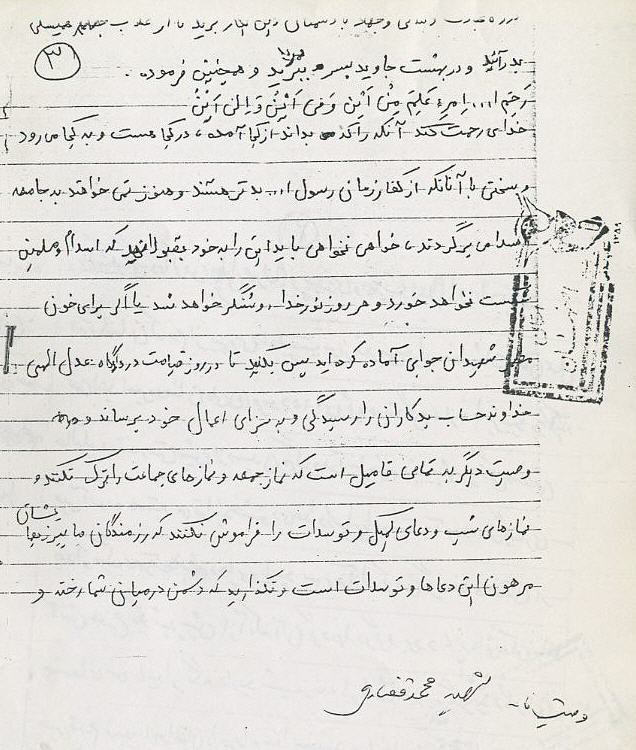 ۳
بدرآئید و در بهشت جاوید بسر ببرید و همچنین فرموده.
رَحِمَ ا... اِمرِءِ عَلِمَ مِنْ اَیْنَ وَ فی اَیْنَ وَ اِلی اَیْنَ
خدای رحمت کند آنکه را که بداند از کجا آمده، در کجا هست و به کجا می رود
و سخنی با آنانکه از کفار زمان رسول ا... بدتر هستند و هنوز نمی خواهند به جامعه
اسلامی برگردند، خواهی نخواهی باید این را به خود بقبولانید که اسلام و مسلمین
شکست نخواهد خورد و هر روز نور خدا روشنتر خواهد شد یا اگر برای خون
شهیدان جوابی آماده کرده اید پس بگنید تا در روز قیامت در دادگاه عدل الهی
خداوند حساب بدکاران را رسیدگی و به سزای اعمال خود برساند و
وصیت دیگر به تمامی فامیل است که نماز جمعه و نمازهای جماعت را ترک نکنند و
نمازهای شب و دعای کمیل و توسلات را فراموش نکنند که رزمندگان ما پیروزیهایشان
مرهون این دعاها و توسلات است و نگذارید که دشمن در میان شما رخنه و
وصیت نامه شهید محمد غفاری